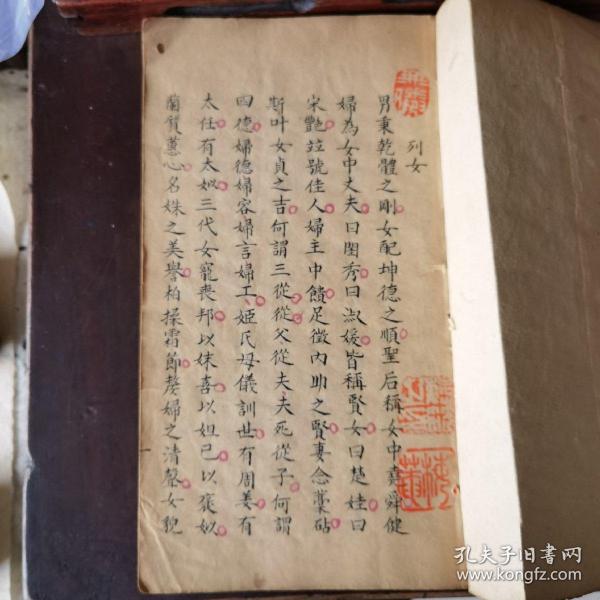 列女
男秉乾體之剛女配坤德之順聖后稱女中堯舜健
婦為女中丈夫曰閨秀曰淑媛皆稱賢女曰楚娃曰
宋艷竝號佳人婦主中饋足徵內助之賢妻念藁砧
斯叶女貞之吉何謂三從從父從夫夫死從子何謂
四德婦德婦容婦言婦工姬氏母儀訓世有周姜有
太任有太姒三代女寵喪邦以妹喜以妲己以褒姒
蘭質蕙心名姝之美譽柏操霜節嫠婦之清馨女貌
孔夫子旧书网
www.kongfz.com